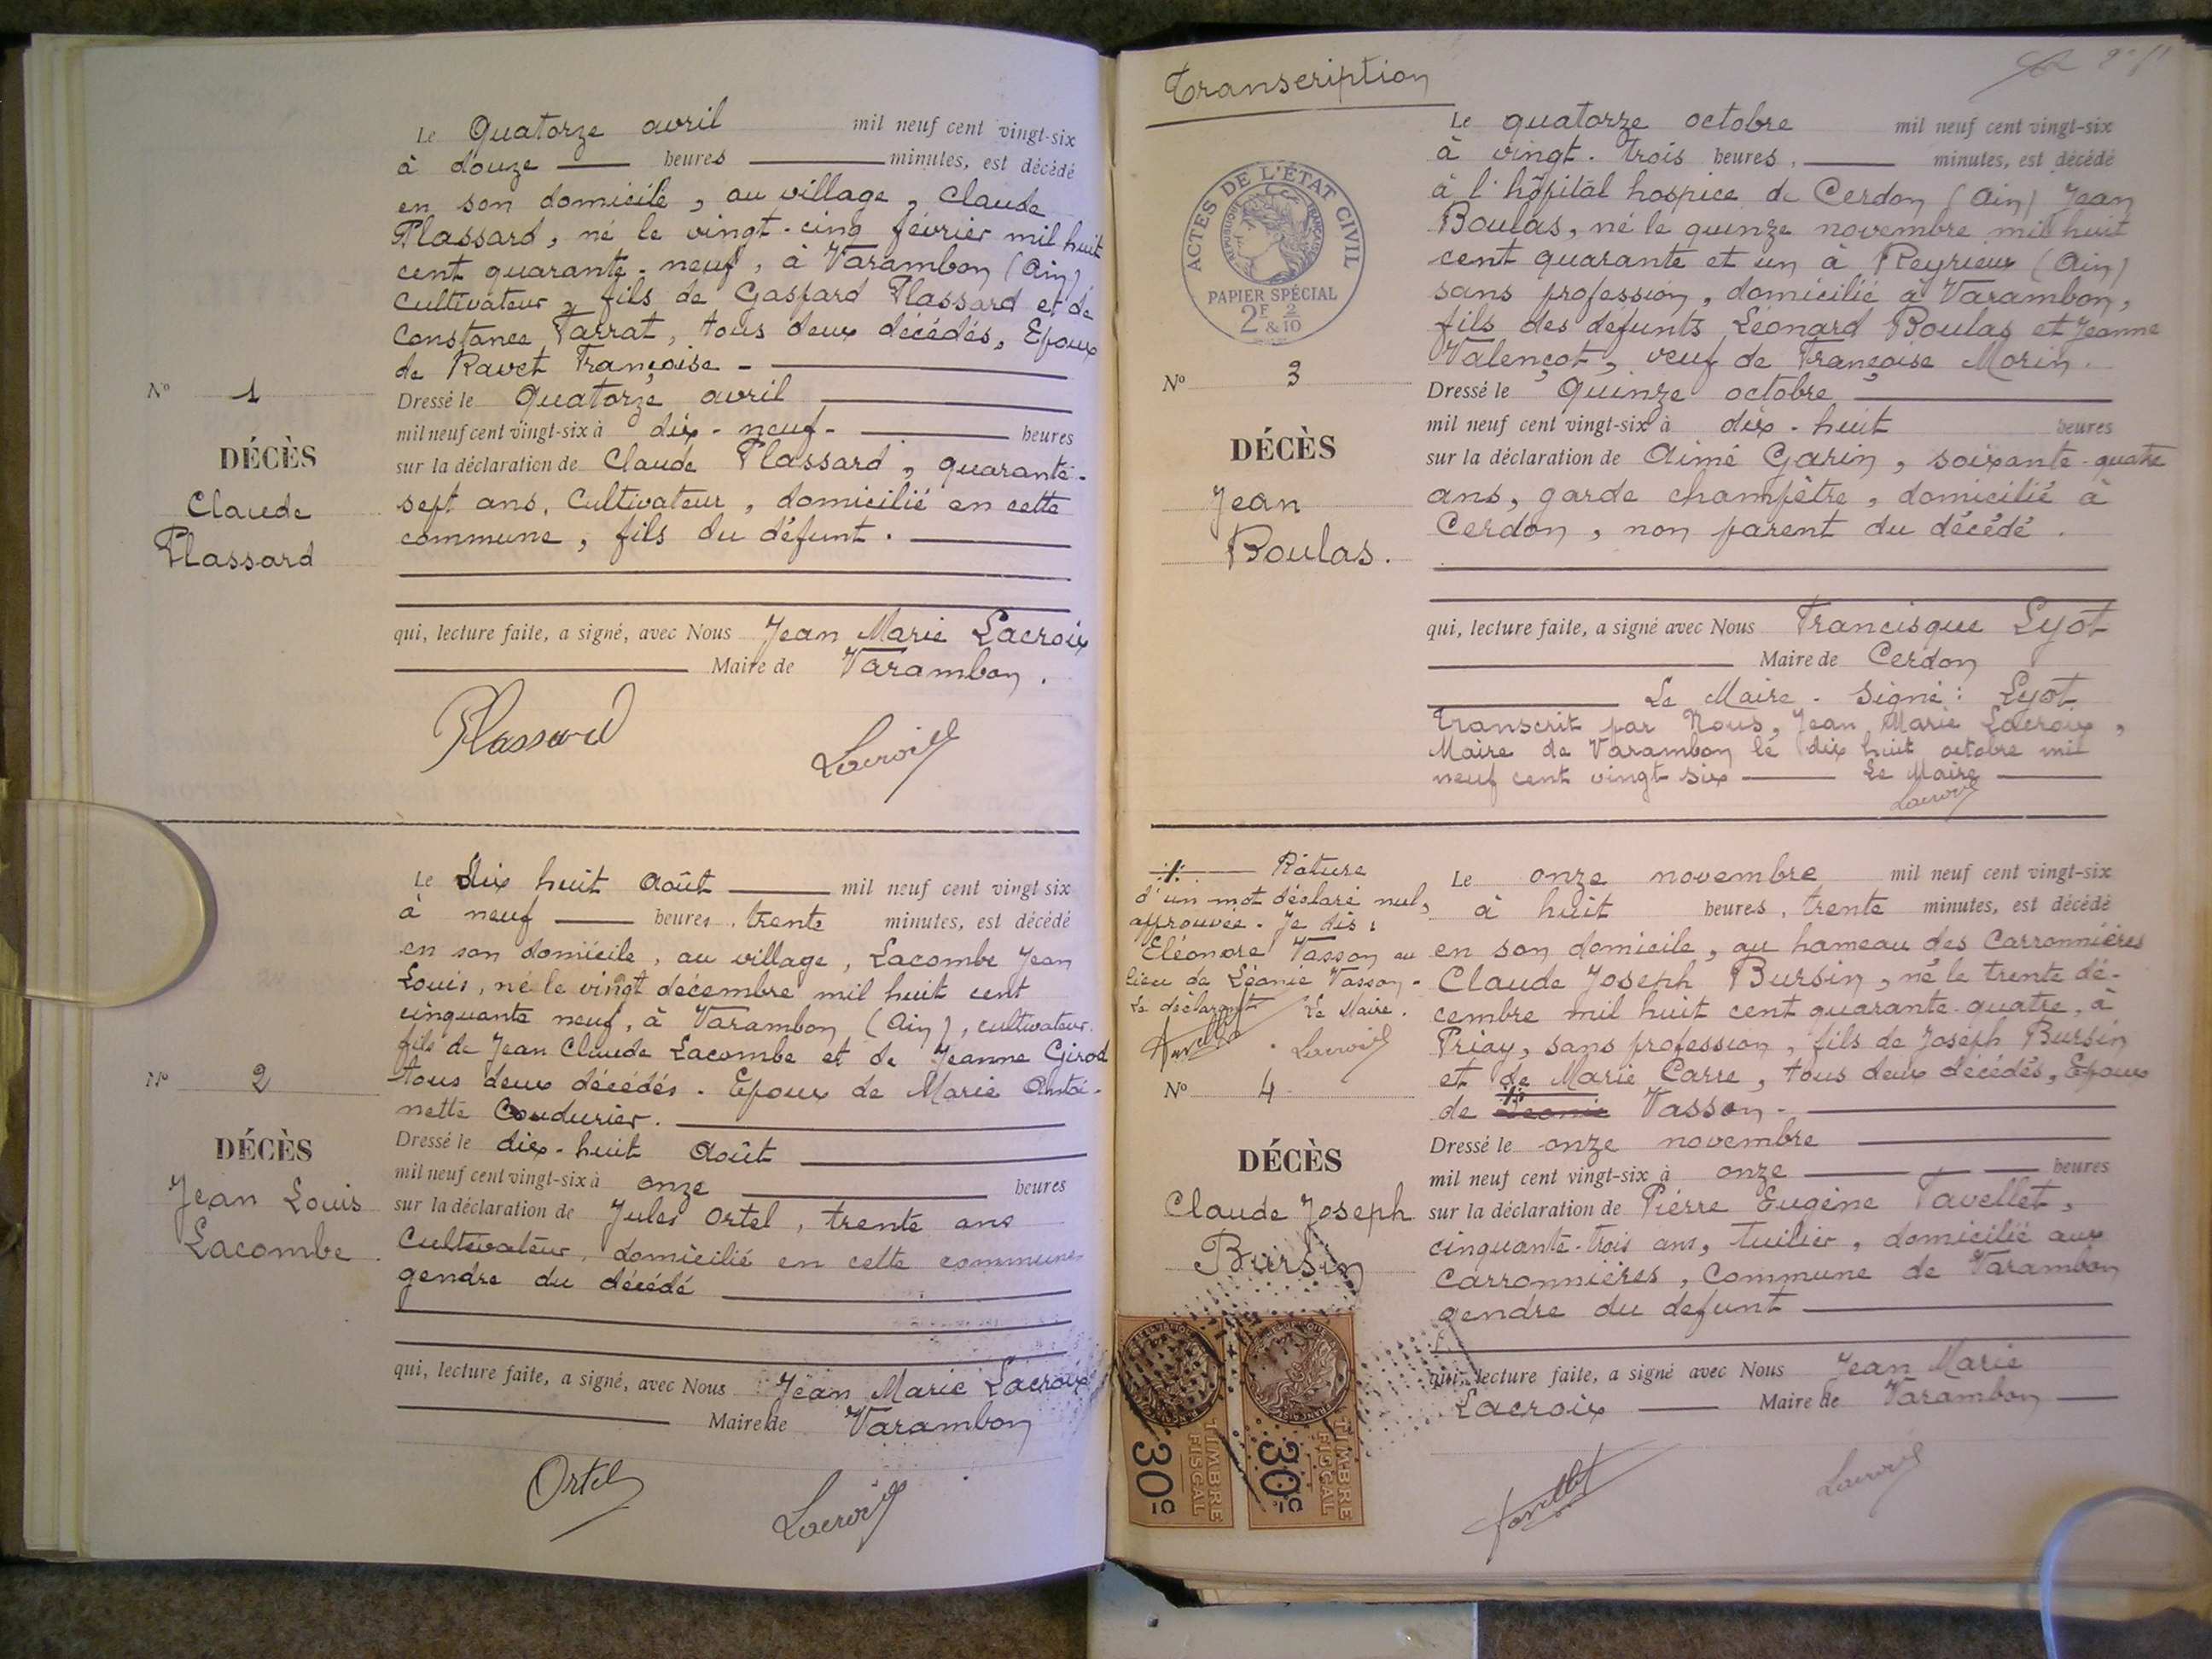 Le Quatorze avril mil neuf cent vingt-six
à douze heures minutes, est décédé
en son domicile, au village, Claude
Plassard, né le vingt-cinq février mil huit
cent quarante-neuf, à Varambon (Ain)
Cultivateur, fils de Gaspard Plassard et de
Constance Tarrat, tous deux décédés, Epoux
de Ravet Françoise -
Nº 1
Dressé le Quatorze avril
mil neuf cent vingt-six à dix-neuf- heures
DÉCÈS
sur la déclaration de Claude Plassard, quarante-
Claude
sept ans, Cultivateur, domicilié en cette
Plassard
commune, fils du défunt.
qui, lecture faite, a signé, avec Nous Jean Marie Lacroix
Maire de Varambon.
Plassard
Lacroix
Le dix huit Août mil neuf cent vingt six
à neuf heures, trente minutes, est décédé
en son domicile, au village, Lacombe Jean
Louis, né le vingt décembre mil huit cent
cinquante neuf, à Varambon (Ain), cultivateur.
fils de Jean Claude Lacombe et de Jeanne Girod
Nº 2
tous deux décédés. Epoux de Marie Antoi-
nette Coudurier.
DÉCÈS
Dressé le dix-huit Août
mil neuf cent vingt-six à onze heures
Jean Louis
sur la déclaration de Jules Ortel, trente ans
Lacombe.
Cultivateur, domicilié en cette commune,
gendre du décédé
qui, lecture faite, a signé, avec Nous Jean Marie Lacroix
Maire de Varambon
Ortel
Lacroix
Transcription
ACTES DE L'ÉTAT CIVIL
RÉPUBLIQUE FRANÇAISE
PAPIER SPÉCIAL
2F 2
& 10
Le quatorze octobre mil neuf cent vingt-six
à vingt-trois heures, minutes, est décédé
à l'hôpital hospice de Cerdon (Ain) Jean
Boulas, né le quinze novembre mil huit
cent quarante et un à Reyrieux (Ain)
sans profession, domicilié à Varambon,
fils des défunts Léonard Boulas et Jeanne
Valençot, veuf de Françoise Morin.
Nº 3
Dressé le Quinze octobre
mil neuf cent vingt-six à dix-huit heures
DÉCÈS
sur la déclaration de Aimé Garin, soixante-quatre
Jean
ans, garde champêtre, domicilié à
Boulas.
Cerdon, non parent du décédé.
qui, lecture faite, a signé avec Nous Francisque Lyot
Maire de Cerdon
Le Maire - signé : Lyot
Transcrit par Nous, Jean Marie Lacroix,
Maire de Varambon le dix huit octobre mil
neuf cent vingt-six Le Maire
Lacroix
Râture
d'un mot déclaré nul,
approuvée. Je dis :
Eléonore Vasson au
lieu de Léonie Vasson -
Le déclarant Le Maire.
Lacroix
Nº 4
DÉCÈS
Claude Joseph
Bursin
Le onze novembre mil neuf cent vingt-six
à huit heures, trente minutes, est décédé
en son domicile, au hameau des Carronnières
Claude Joseph Bursin, né le trente dé-
cembre mil huit cent quarante-quatre, à
Priay, sans profession, fils de Joseph Bursin
et de Marie Carre, tous deux décédés, Epoux
de Léonie Vasson -
Dressé le onze novembre
mil neuf cent vingt-six à onze heures
sur la déclaration de Pierre Eugène Favellet,
cinquante-trois ans, tuilier, domicilié aux
Carronnières, Commune de Varambon
gendre du defunt
qui, lecture faite, a signé avec Nous Jean Marie
Lacroix Maire de Varambon
Favellet
Lacroix
TIMBRE
FISCAL
30c
TIMBRE
FISCAL
30c